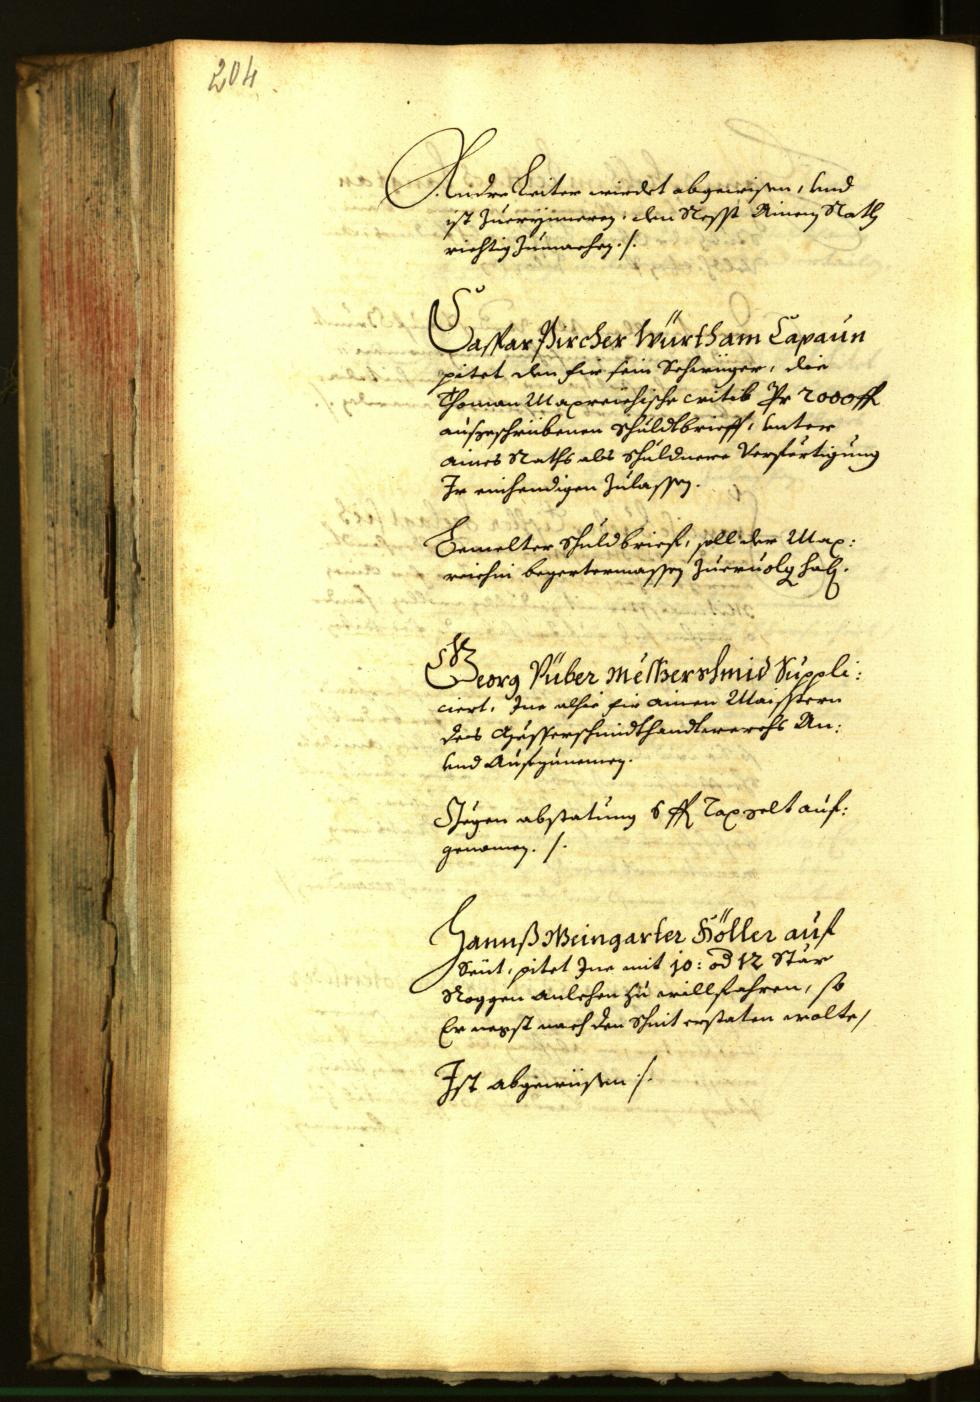 204
Andre Reiter wirdet abgewisen, vnd
ist zuerynneren, den Rest Ainem Rath
richtig zumachen ./.
Casspar Pircher Würth am Capaun
pitet den für sein Schwiger, die
Thoman Mayrreichische wittib Pr 2000 fl
aufgeschribenen schuldtbrieff, vnter
aines Raths als schuldnere Verfertigung
Ir einhendigen zulassen.
Bemelter schuldbrief, soll der Mayr:
reichin begertermassen zueruolg haben.
Georg Püber Messerschmid Suppli:
ciert, Ine alhie für ainen Maistern
des Messerschmidthandtwerchs An:
vnd Aufzunemen.
Gegen abstatung 6 fl Taxgelt auf:
genomen. ./.
Hannß Weingarter Höller auf
Seüt, pitet Ine mit 10: od 12 Stär
Roggen anlehen zu willfahren, so
Er negst nach den Schnit erstaten wolte,
Ist abgewüsen ./.